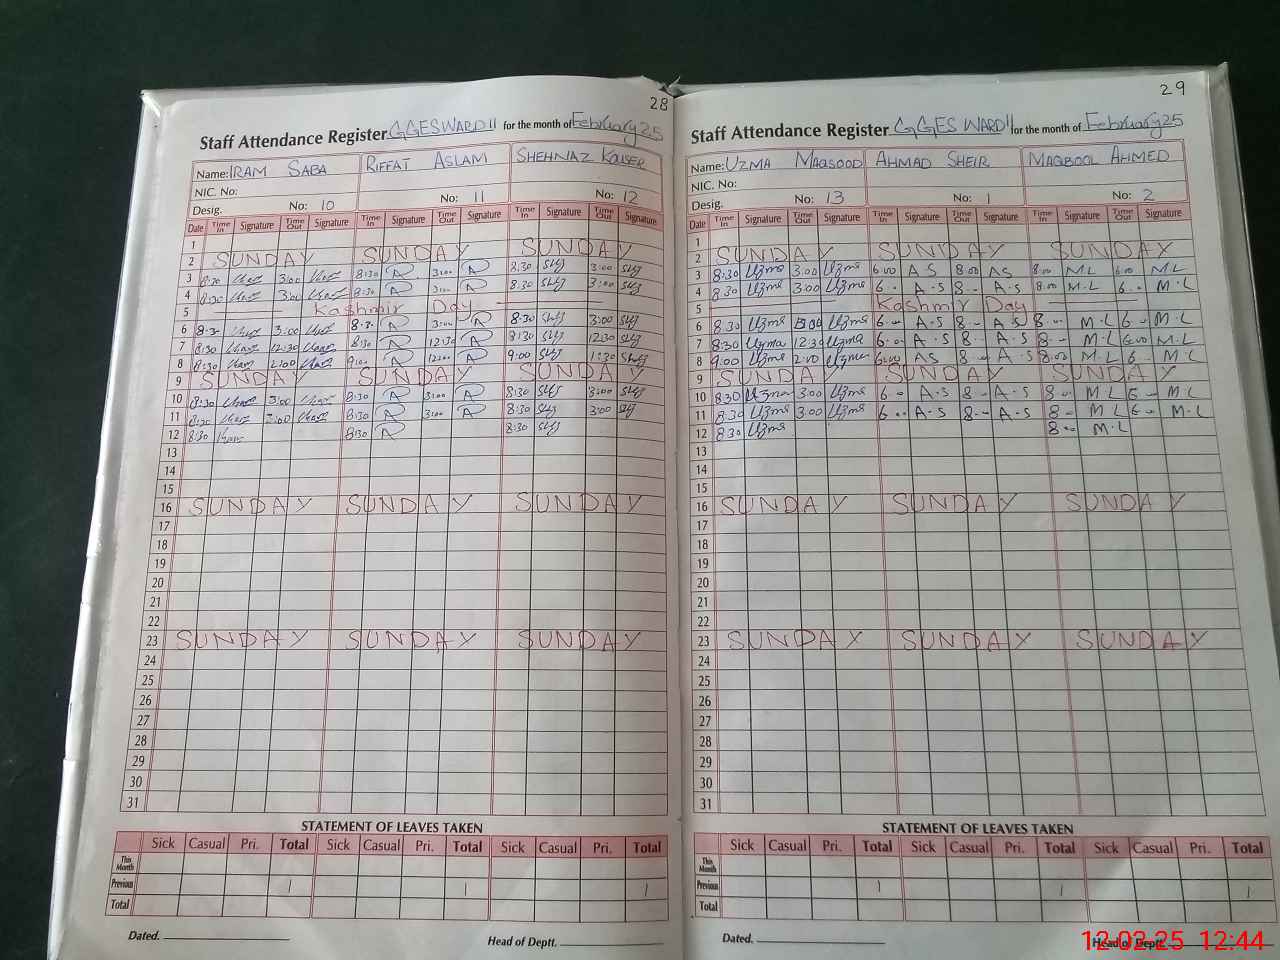 28
Staff Attendance Register GGES WARD 11 for the month of February 25
Name: IRAM SABA RIFFAT ASLAM SHEHNAZ KAUSER
NIC. No:
Desig. No: 10 No: 11 No: 12
Date Time In Signature Time Out Signature Time In Signature Time Out Signature Time In Signature Time Out Signature
1
2 SUNDAY SUNDAY SUNDAY
3 8:30 3:00 8:30 A 3:00 A 8:30 3:00
4 8:30 3:00 8:30 A 3:00 A 8:30 3:00
5 Kashmir Day
6 8:3- 3:00 8:3- A 3:00 A 8:30 3:00
7 8:30 12:30 8:30 A 12:30 A 8:30 12:30
8 8:30 9:00 A A 9:00
9 SUNDAY SUNDAY SUNDAY
10 8:30 3:00 8:30 A 3:00 A 8:30 3:00
11 8:30 3:00 8:30 A 3:00 A 8:30 3:00
12 8:30 8:30 A 8:30
13
14
15
16 SUNDAY SUNDAY SUNDAY
17
18
19
20
21
22
23 SUNDAY SUNDAY SUNDAY
24
25
26
27
28
29
30
31
STATEMENT OF LEAVES TAKEN
Sick Casual Pri. Total Sick Casual Pri. Total Sick Casual Pri. Total
This Month
Previous 1 1 1
Total
Dated. Head of Deptt.
29
Staff Attendance Register GGES WARD 11 for the month of February 25
Name: UZMA MAQSOOD AHMAD SHEIR MAQBOOL AHMED
NIC. No:
Desig. No: 13 No: 1 No: 2
Date Time In Signature Time Out Signature Time In Signature Time Out Signature Time In Signature Time Out Signature
1
2 SUNDAY SUNDAY SUNDAY
3 8:30 Uzma 3:00 Uzma 6:00 A S 8:00 AS 8:00 M L 6:00 M.L
4 8:30 Uzma 3:00 Uzma 6-- A.S 8-- A.S 8:00 M.L 6-- M.L
5 Kashmir Day
6 8:30 Uzma 3:00 Uzma 6-- A.S 8-- A.S 8-- M.L 6-- M.L
7 8:30 Uzma 12:30 Uzma 6-- A.S 8-- A.S 8-- M.L 6:00 M.L
8 9:00 Uzma 2:00 Uzma 6:00 AS 8-- A.S 8:00 M.L 6-- M.L
9 SUNDAY SUNDAY SUNDAY
10 8:30 Uzma 3:00 Uzma 6-- A.S 8-- A.S 8-- M.L 6-- M.L
11 8:30 Uzma 3:00 Uzma 6-- A.S 8-- A.S 8-- M.L 6-- M.L
12 8:30 Uzma 8-- M.L
13
14
15
16 SUNDAY SUNDAY SUNDAY
17
18
19
20
21
22
23 SUNDAY SUNDAY SUNDAY
24
25
26
27
28
29
30
31
STATEMENT OF LEAVES TAKEN
Sick Casual Pri. Total Sick Casual Pri. Total Sick Casual Pri. Total
This Month
Previous 1 1 1
Total
Dated. Head of Deptt.
12.02.25 12:44